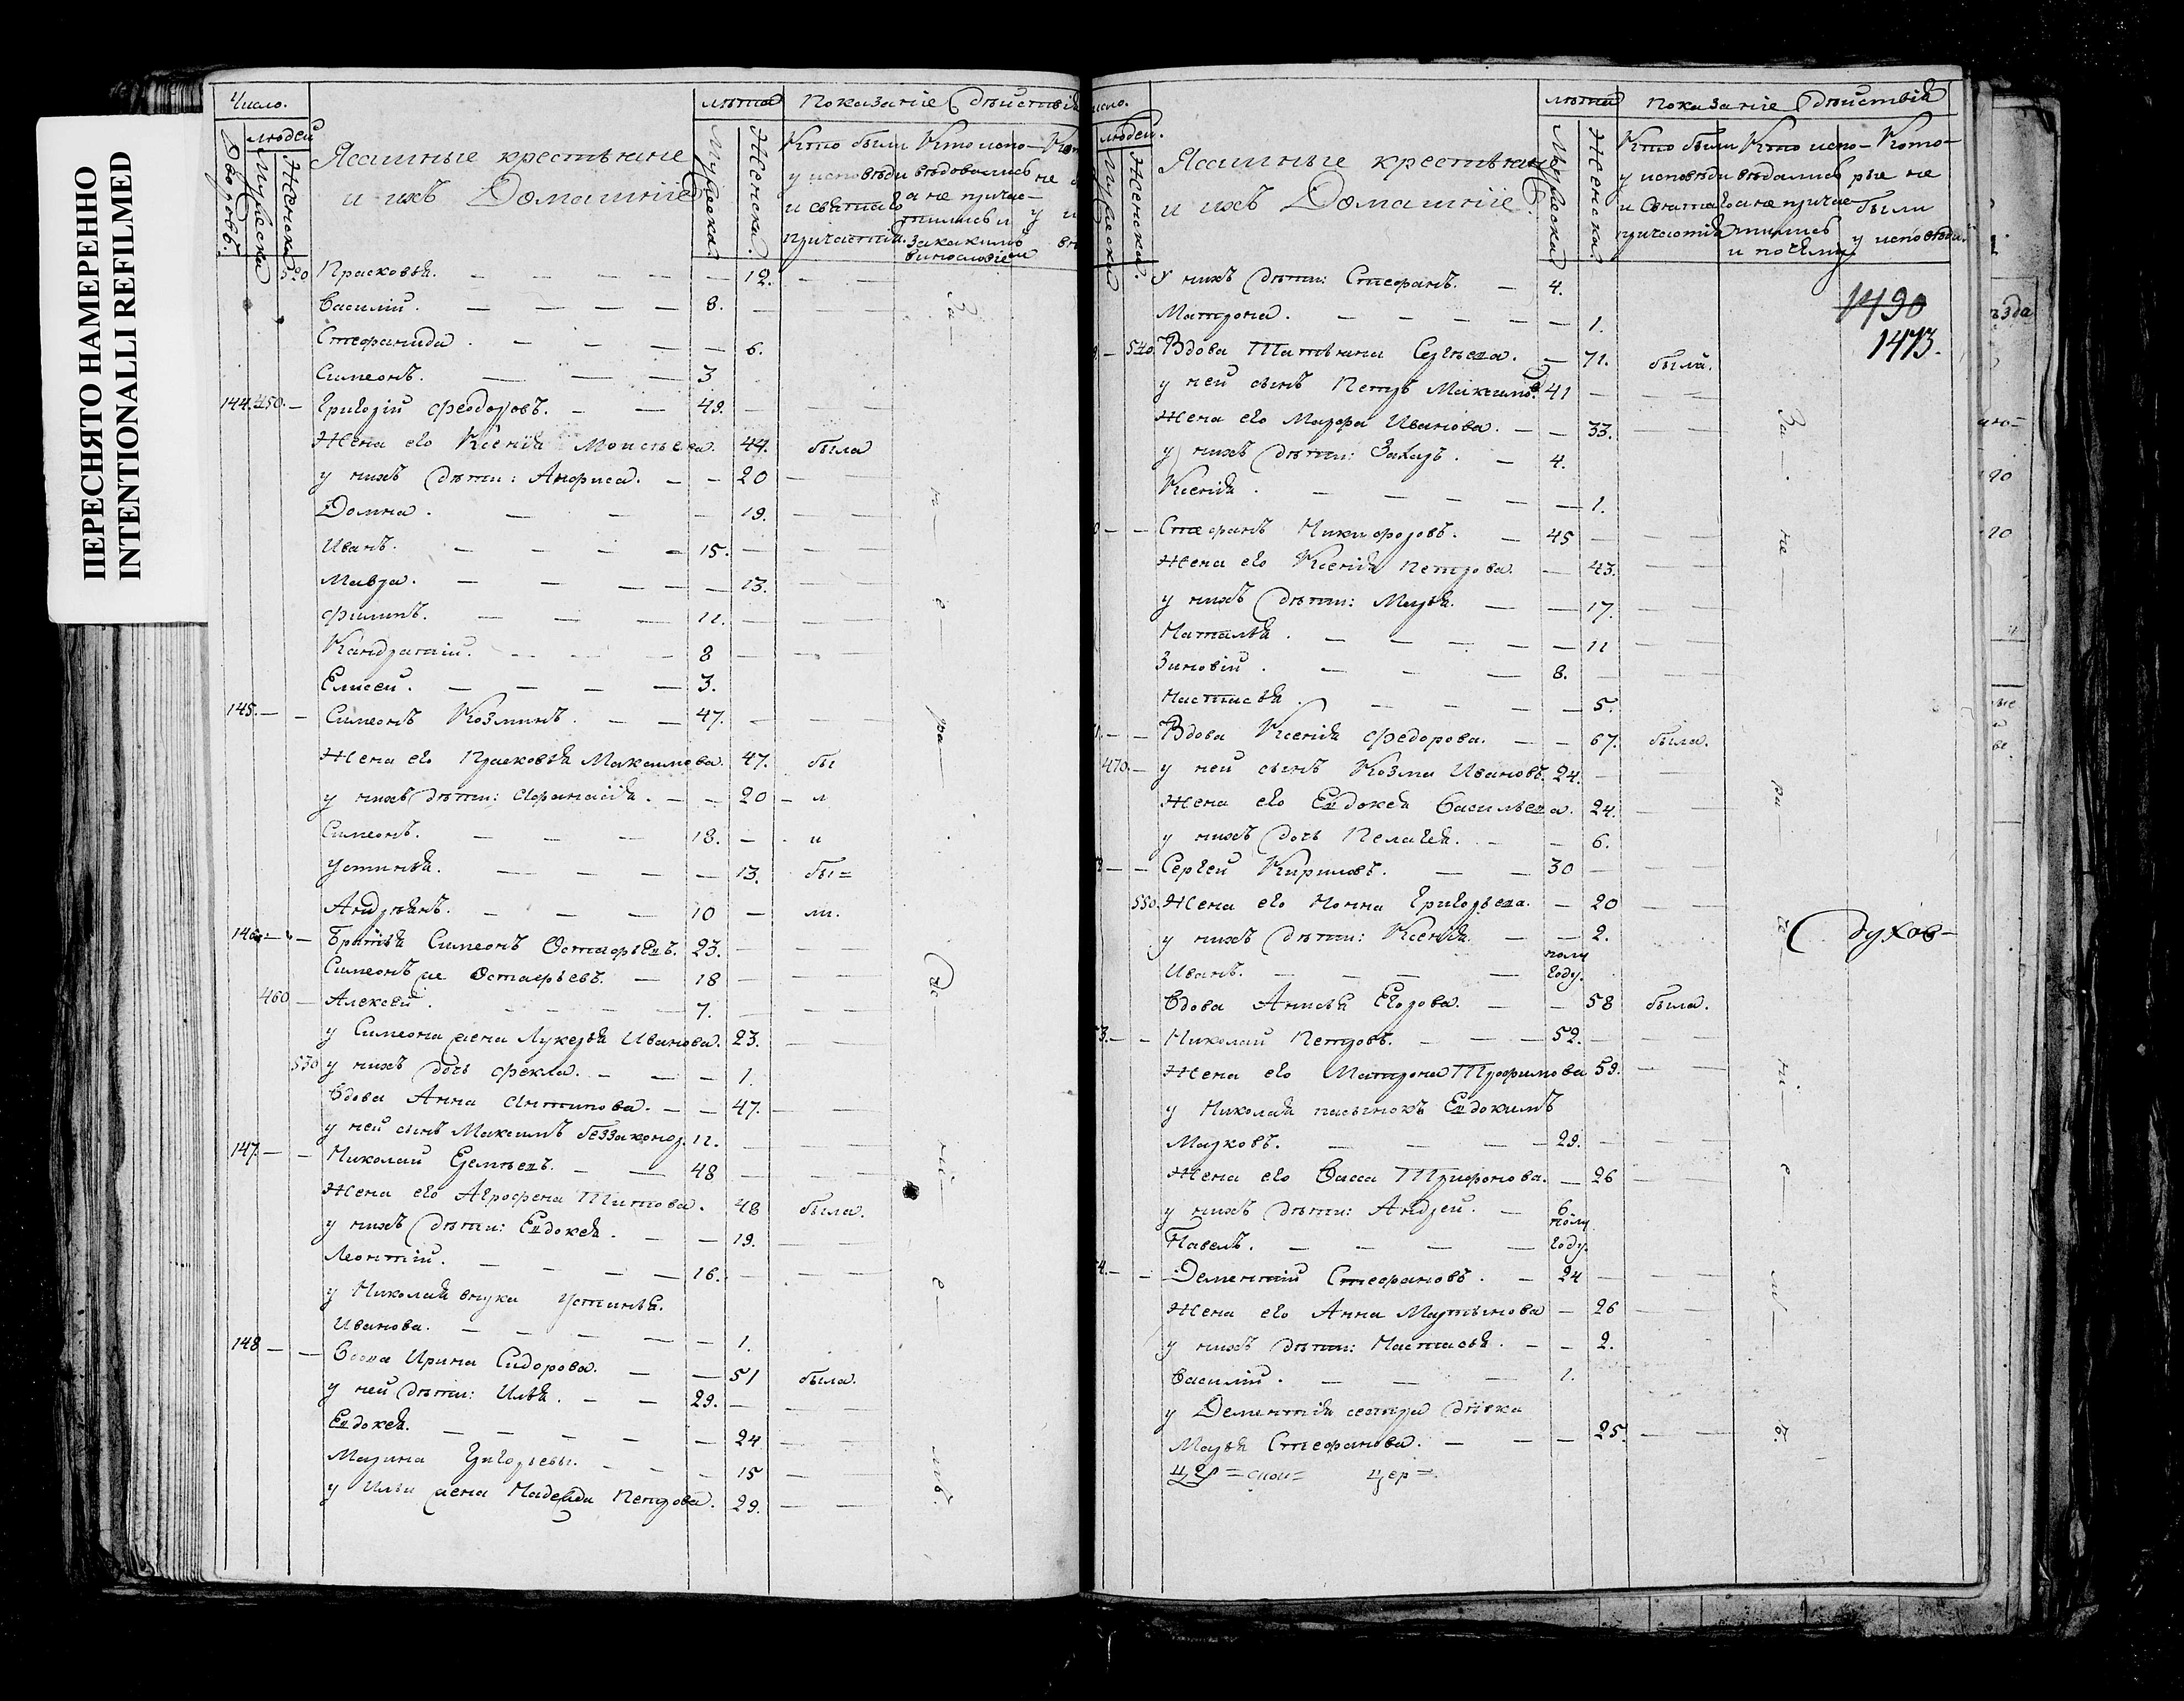 ПЕРЕСНЯТО НАМЕРЕННО
INTENTIONALLI REFILMED
Число.
людей
Дворовъ.
Мужеска
Женска
Ясашные крестьяне
и ихъ Домашніе
лѣта
Мужеска.
Женска.
Показаніе дѣйствія
Кто были
у исповѣди
и святаго
причастія.
Кто испо-
вѣдовались
а не причас-
тились и
за какимъ
винословіем
520 Прасковья. 12.
Василій. 8.
Стефанида. 6.
Симеонъ. 3
144. 450. Григорій Феодоровъ. 49.
Жена его Ксенія Моисеева. 44. была
у нихъ дѣти: Анфиса. 20
Домна. 19.
Иванъ. 15.
Мавра. 13.
Филипъ. 11.
Кандратій. 8
Елисей. 3.
145. Симеонъ Козминъ. 47.
Жена его Прасковья Максимова. 47. бы
у нихъ дѣти: Афанасія. 20 л
Симеонъ. 18. и
Устинья. 13. бы=
Андреянъ. 10 ли.
146. Братья Симеонъ Остафьевъ. 23.
Симеонъ же Остафьевъ. 18
460 Алексѣй. 7.
у Симеона жена Лукерья Иванова. 23.
530 у нихъ дочь Фекла. 1.
Вдова Анна Антипова. 47.
у ней сынъ Максимъ беззаконор. 11.
147. Николай Еремѣевъ. 48
Жена его Агрофена Титова. 48 была.
у нихъ дѣти: Евдокея. 19.
Леонтій. 16.
у Николая внука Устинья.
Иванова. 1.
148 Вдова Ирина Сидорова. 51 была.
у ней дѣти: Илья. 29.
Евдокея. 24
Марина Григорьевы. 15
у Ильи жена Надежда Петрова. 29.
людей.
Мужеска
Женска.
Ясашные крестьяне
и ихъ Домашніе.
лѣта
Мужеска
Женска.
Показаніе дѣйствія
Кто были
у исповѣди
и Святаго
причастія
Кто испо-
вѣдались
а не причас-
тились
и почему.
Кото-
рые не
были
у исповѣди.
1490
1473.
У нихъ дѣти: Стефанъ. 4.
Матрона. 1.
540. Вдова Татьяна Сергѣева. 71. была.
у ней сынъ Петръ Максимов. 41
Жена его Марфа Иванова. 33.
у нихъ дѣти: Захаръ. 4.
Ксенія. 1.
Стефанъ Никифоровъ. 45
Жена его Ксенія Петрова. 43.
у нихъ дѣти: Марья. 17.
Наталья. 11
Зиновій. 8.
Настасья. 5.
Вдова Ксенія Федорова. 67. была.
470. у ней сынъ Козма Ивановъ. 24.
Жена его Евдокея Васильева. 24.
у нихъ дочь Пелагея. 6.
Сергей Кириловъ. 30
550. Жена его Нонна Григорьева. 20
у нихъ дѣти: Ксенія. 2.
Иванъ. полу году.
Вдова Анисья Егорова. 58 была.
3. Николай Петровъ. 52.
Жена его Матрона Трофимова 59.
у Николая пасынокъ Евдокимъ
Марковъ. 29.
Жена его Васса Трифонова. 26
у нихъ дѣти: Андрей. 6.
Павелъ. полу году.
4. Дементій Стефановъ. 24
Жена его Анна Мартынова 26
у нихъ дѣти: Настасья. 2.
Василій. 1.
у Дементія сестра дѣвка
Марья Стефанова. 25.
цер=
За
не
ра
де
ні
е
м
ъ.
Духов-